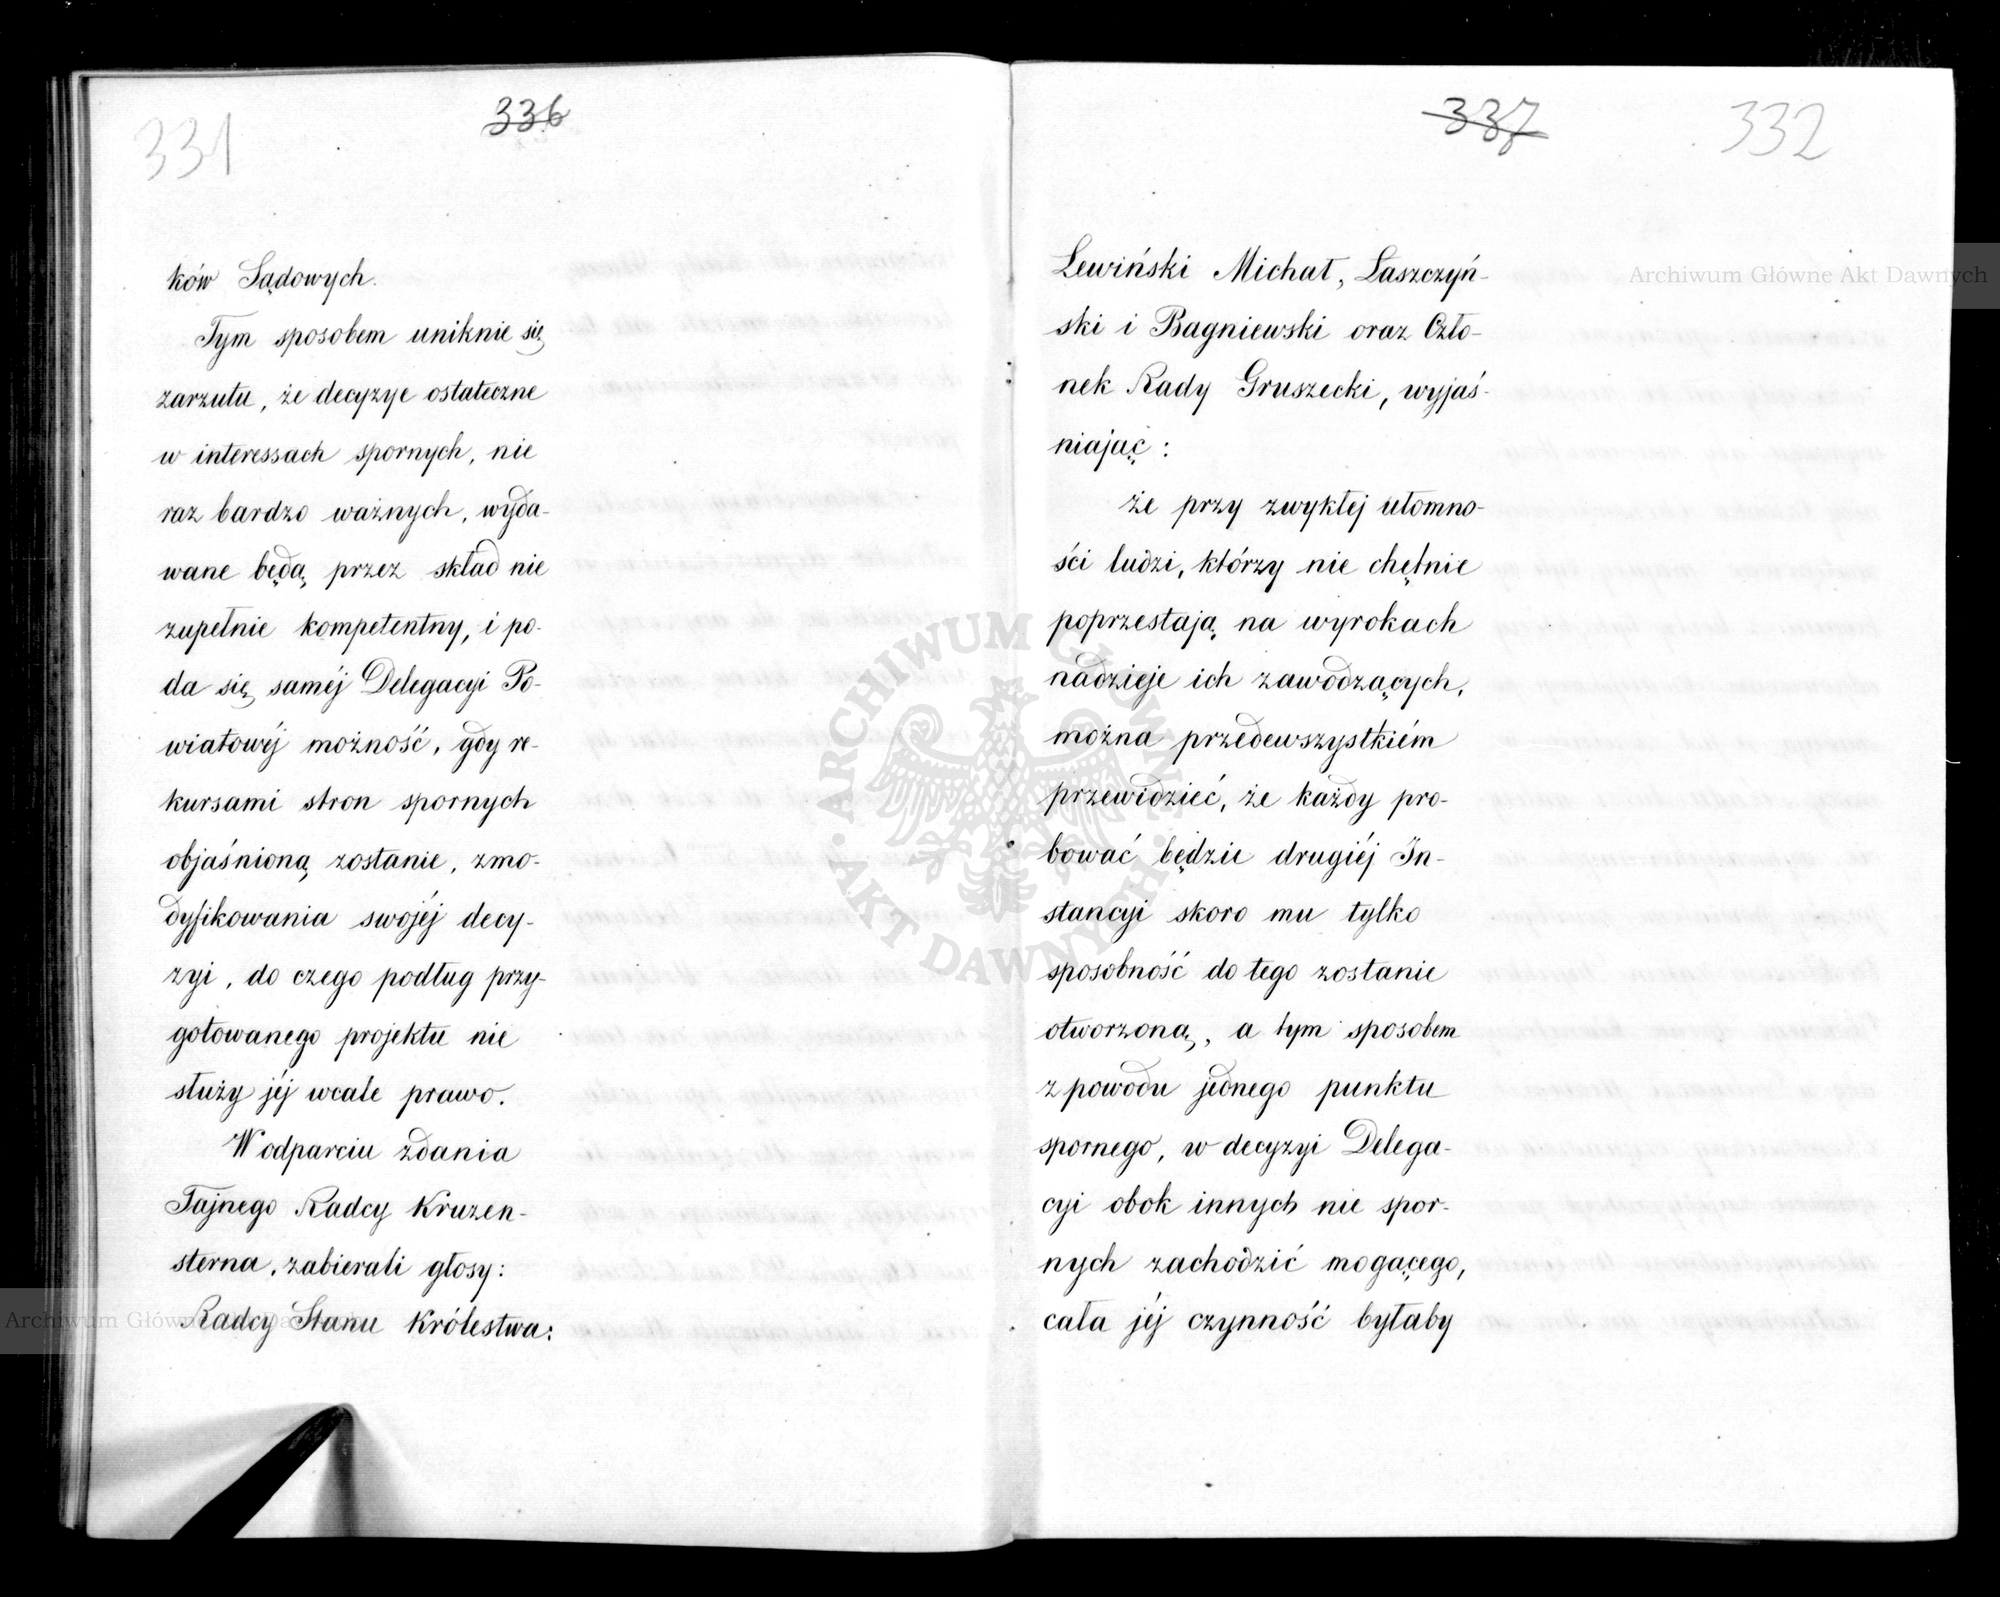 331
336
ków Sądowych.
Tym sposobem uniknie się
zarzutu, że decyzye ostateczne
w interessach spornych, nie
raz bardzo ważnych, wyda-
wane będą, przez skład nie
zupełnie kompetentny, i po-
da się saméj Delegacyi Po-
wiatowéj możność, gdy re-
kursami stron spornych
objaśnioną zostanie, zmo-
dyfikowania swojéj decy-
zyi, do czego podług przy-
gotowanego projektu nie
służy jéj wcale prawo.
W odparciu zdania
Tajnego Radcy Kruzen-
sterna, zabierali głosy:
Radcy Stanu Królestwa:
337
332
Lewiński Michał, Łaszczyń-
ski i Bagniewski oraz Czło-
nek Rady Gruszecki, wyjaś-
niając:
że przy zwykłej ułomno-
ści ludzi, którzy nie chętnie
poprzestają na wyrokach
nadzieje ich zawodzących,
można przedewszystkiém
przewidzieć, że każdy pro-
bować będzie drugiéj In-
stancyi skoro mu tylko
sposobność do tego zostanie
otworzoną, a tym sposobem
z powodu jednego punktu
spornego, w decyzyi Delega-
cyi obok innych nie spor-
nych zachodzić mogącego,
cała jéj czynność byłaby
Archiwum Główne Akt Dawnych
ARCHIWUM GŁÓWNE
AKT DAWNYCH
Archiwum Główne Akt Dawnych